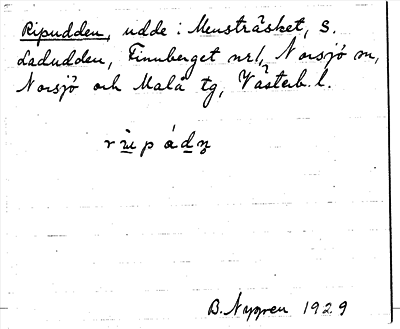 Ripudden, udde i Mensträsket, S.
Ladudden, Finnberget nr 1, Norsjö sn,
Norsjö och Malå tg, Västerb. l.
B. Nygren 1929